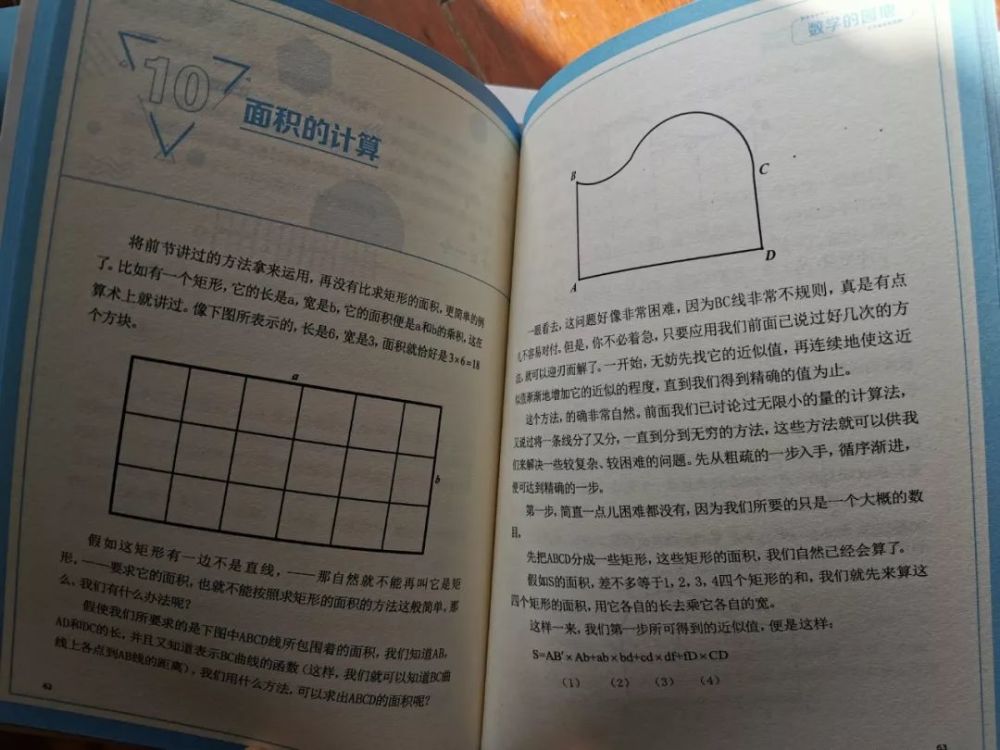 10
面积的计算
将前节讲过的方法拿来运用，再没有比求矩形的面积，更简单的例
了。比如有一个矩形，它的长是a，宽是b，它的面积便是a和b的乘积，这在
算术上就讲过。像下图所表示的，长是6，宽是3，面积就恰好是3×6=18
个方块。
a
b
假如这矩形有一边不是直线，——那自然就不能再叫它是矩
形，——要求它的面积，也就不能按照求矩形的面积的方法这般简单，那
么，我们有什么办法呢？
假使我们所要求的是下图中ABCD线所包围着的面积，我们知道AB，
AD和DC的长，并且又知道表示BC曲线的函数（这样，我们就可以知道BC曲
线上各点到AB线的距离），我们用什么方法，可以求出ABCD的面积呢？
62
数学的园地
B
C
A
D
一眼看去，这问题好像非常困难，因为BC线非常不规则，真是有点
儿不容易对付。但是，你不必着急，只要应用我们前面已说过好几次的方
法，就可以迎刃而解了。一开始，无妨先找它的近似值，再连续地使这近
似值渐渐地增加它的近似的程度，直到我们得到精确的值为止。
这个方法，的确非常自然。前面我们已讨论过无限小的量的计算法，
又说过将一条线分了又分，一直到分到无穷的方法，这些方法就可以供我
们来解决一些较复杂、较困难的问题。先从粗疏的一步入手，循序渐进，
便可达到精确的一步。
第一步，简直一点儿困难都没有，因为我们所要的只是一个大概的数
目。
先把ABCD分成一些矩形，这些矩形的面积，我们自然已经会算了。
假如S的面积，差不多等于1，2，3，4四个矩形的和，我们就先来算这
四个矩形的面积，用它各自的长去乘它各自的宽。
这样一来，我们第一步所可得到的近似值，便是这样：
S=AB′×Ab+ab×bd+cd×df+fD×CD
（1） （2） （3） （4）
63